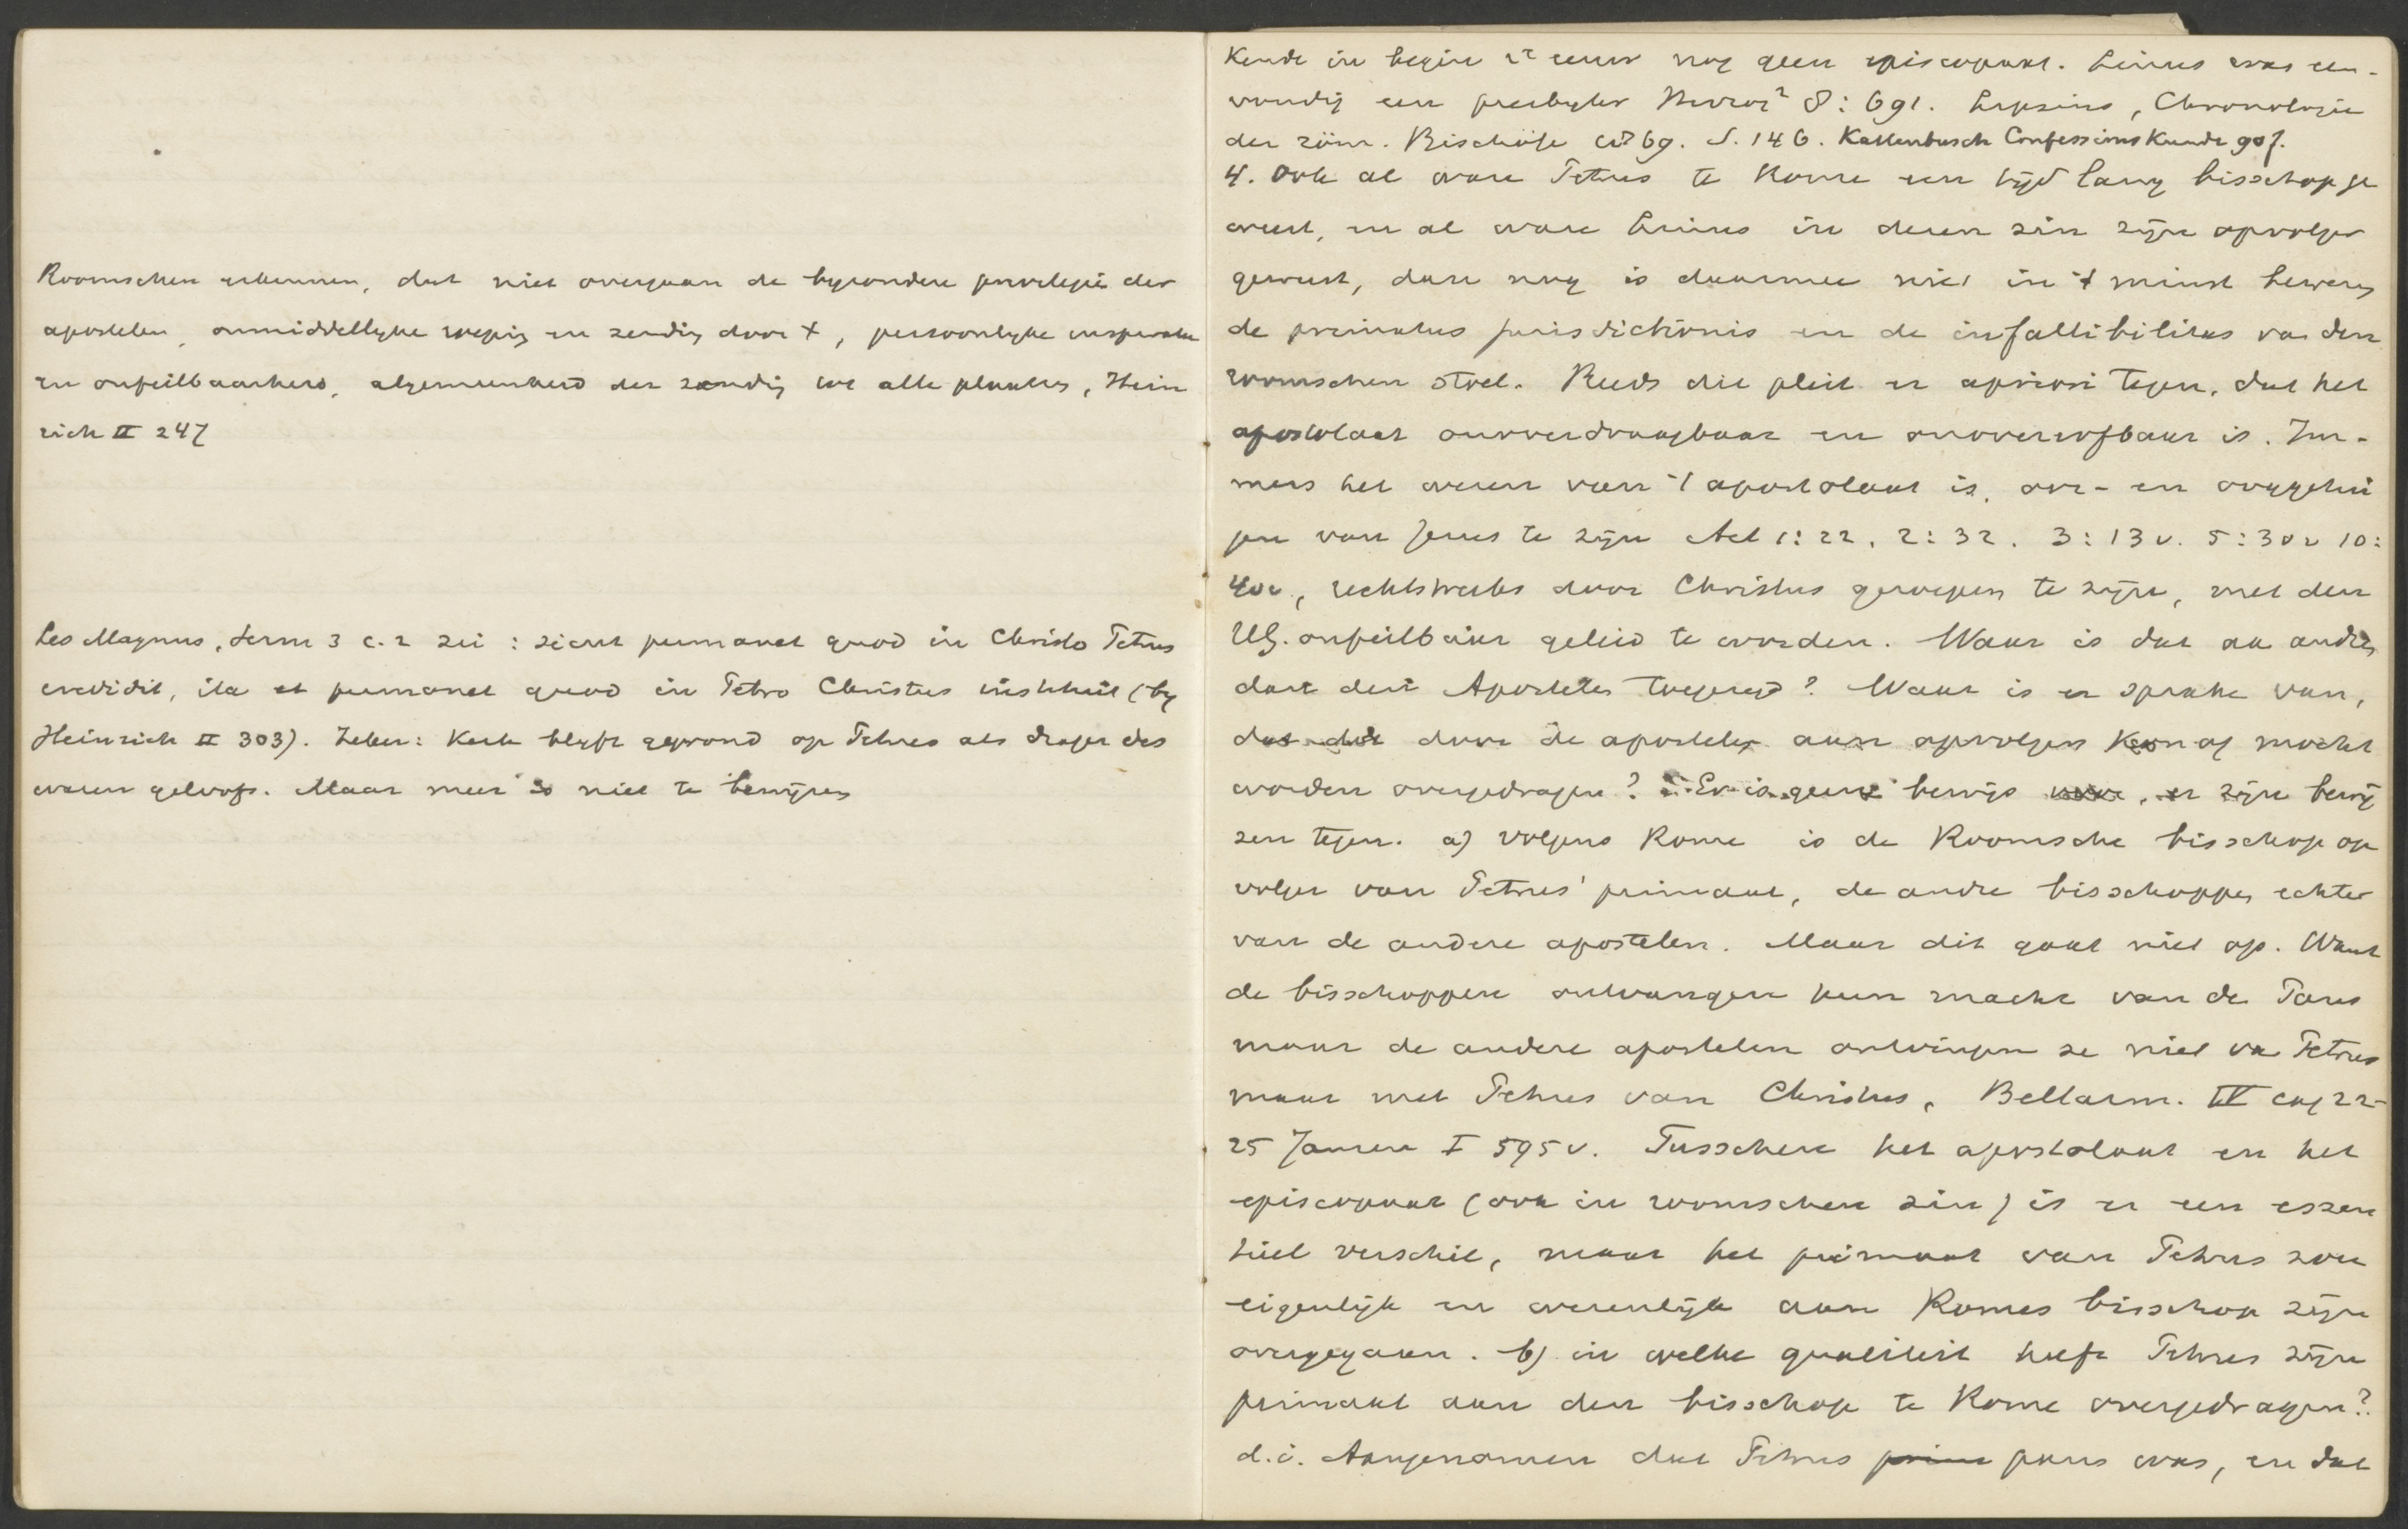 Roomschen erkennen, dat niet overgaan de byzondere privilegië der
apostelen, onmiddellyke roeping en zending door X, persoonlyke inspiratie
en onfeilbaarheid, algemeenheid der zending tot alle plaatsen, Hein
rich II 247
Leo Magnus, Serm 3 c. 2 zei: sicut permanet quod in Christo Petrus
credidit, ita et permanet quod in Petro Christus instituit (by
Heinrich II 303). Zeker: Kerk blyft gegrond op Petrus als drager des
waren geloofs. Maar meer is niet te bewijzen
Kende in begin 2e eeuw nog geen episcopaat. Linus was een-
voudig een presbyter Herzog² 8: 691. Lipsius, Chronologie
der röm. Bischöfe 1869. S. 146. Kattenbusch Confessions Kunde 90f.
4. Ook al ware Petrus te Rome een tijd lang bisschop ge
weest, en al ware Linus in dezen zin zijn opvolger
geweest, dan nog is daarmee niet in 't minst bewezen
de primatus jurisdictionis en de infallibilitas van den
roomschen stoel. Reeds dit pleit er apriori tegen, dat het
apostolaat onoverdraagbaar en onovererfbaar is. Im-
mers het wezen van 't apostolaat is, oor- en ooggetui
gen van Jezus te zijn Act 1:22, 2:32. 3:13v. 5:30v 10:
40v, rechtstreeks door Christus geroepen te zijn, met den
HG. onfeilbaar geleid te worden. Waar is dat aan anderen
dan den Apostelen toegezegd? Waar is er sprake van,
dat dit door de apostelen aan opvolgers kon of mocht
worden overgedragen? Er is geen bewijs voor, er zijn bewij
zen tegen. a) volgens Rome is de Roomsche bisschop op
volger van Petrus' primaat, de andre bisschoppen echter
van de andere apostelen. Maar dit gaat niet op. Want
de bisschoppen ontvangen hun macht van de Paus
maar de andere apostelen ontvingen ze niet van Petrus
maar met Petrus van Christus, Bellarm. IV cap 22-
25 Jansen I 595v. Tusschen het apostolaat en het
episcopaat (ook in roomschen zin) is er een essen
tiëel verschil, maar het primaat van Petrus zou
eigenlijk en wezenlijk aan Romes bisschop zijn
overgegaan. b) in welke qualiteit heeft Petrus zijn
primaat aan den bisschop te Rome overgedragen?
d.i. Aangenomen dat Petrus prim paus was, en dat